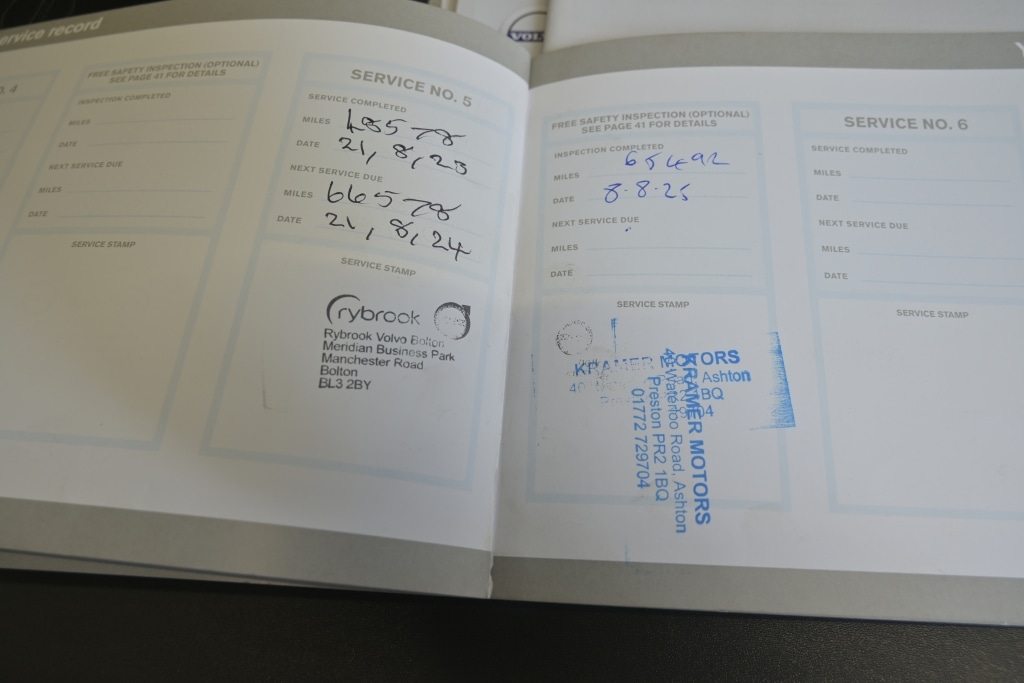 service record
VOL
FREE SAFETY INSPECTION (OPTIONAL)
SEE PAGE 41 FOR DETAILS
INSPECTION COMPLETED
MILES
DATE
NEXT SERVICE DUE
MILES
DATE
SERVICE STAMP
SERVICE NO. 5
SERVICE COMPLETED
MILES 48578
DATE 21,8,23
NEXT SERVICE DUE
MILES 66578
DATE 21,8,24
SERVICE STAMP
rybrook
Rybrook Volvo Bolton
Meridian Business Park
Manchester Road
Bolton
BL3 2BY
FREE SAFETY INSPECTION (OPTIONAL)
SEE PAGE 41 FOR DETAILS
INSPECTION COMPLETED
MILES 65492
DATE 8-8-25
NEXT SERVICE DUE
MILES
DATE
SERVICE STAMP
KRAMER MOTORS
Ashton
KRAMER MOTORS
40 Waterloo Road, Ashton
Preston PR2 1BQ
01772 729704
SERVICE NO. 6
SERVICE COMPLETED
MILES
DATE
NEXT SERVICE DUE
MILES
DATE
SERVICE STAMP